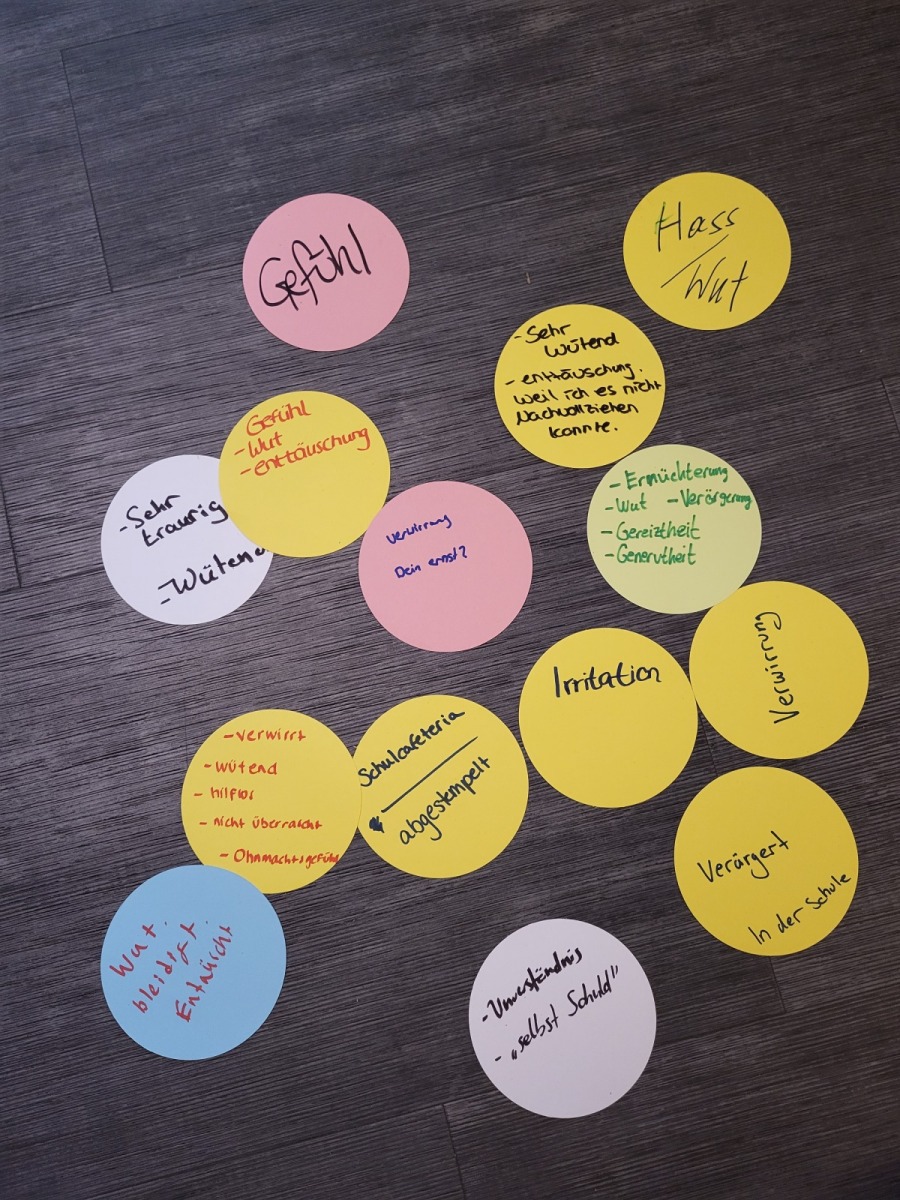 Gefühl
Hass
/
Wut
- Sehr
Wütend
- enttäuschung.
weil ich es nicht
Nachvollziehen
konnte.
Gefühl
- Wut
- enttäuschung
- Sehr
traurig
- Wütend
Verwirrung
Dein ernst?
- Ermüchterung
- Wut - Verärgerung
- Gereiztheit
- Genervtheit
Verwirrung
Irritation
Schulcafeteria
abgestempelt
- verwirrt
- wütend
- hilflos
- nicht überrascht
- Ohnmachtsgefühl
Verärgert
In der Schule
Wut.
bleidigt.
Entäuscht
- Unverständnis
- „selbst Schuld"